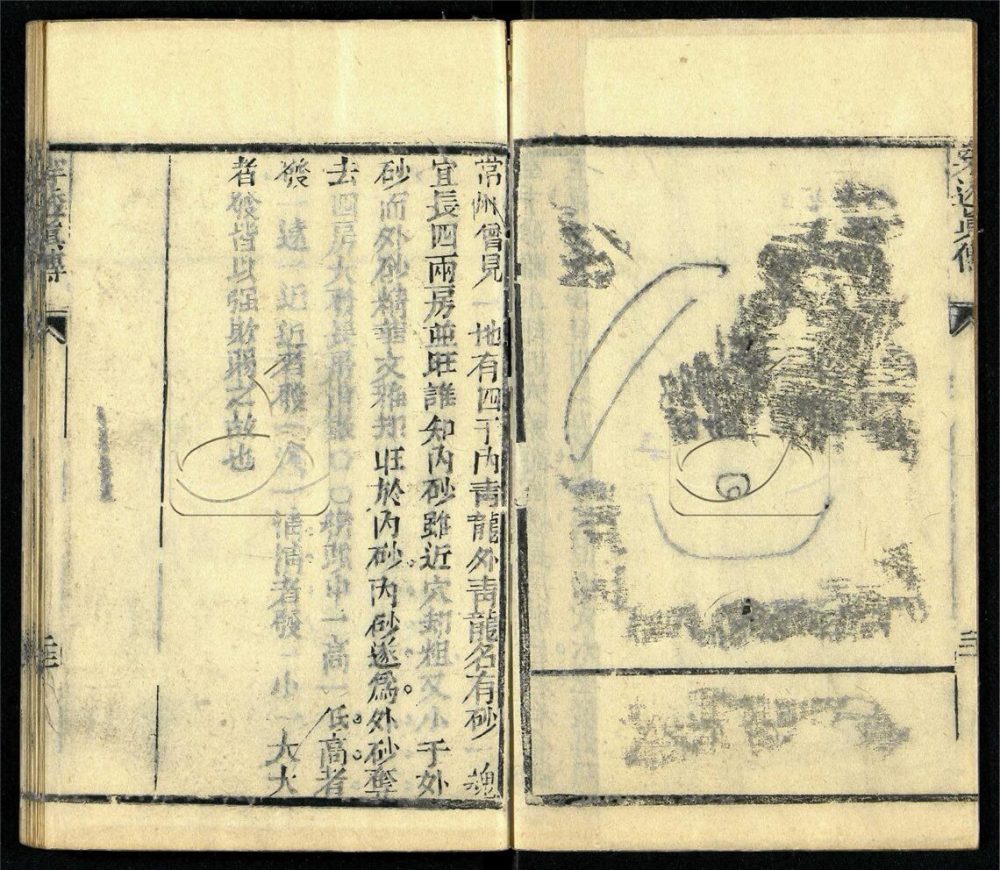 穿透眞傳
常州僧見一地有四于內青龍外青龍名有砂一魂
宜長四兩房並旺誰知內砂雖近穴却粗又小于外
砂而外砂精華文雅却旺於內砂內砂遂爲外砂奪
去四房大利長房中一高一低高者
發一遠一近近者發一濁一清清者發一小一大大
者發皆以强欺弱之故也
穿透眞傳